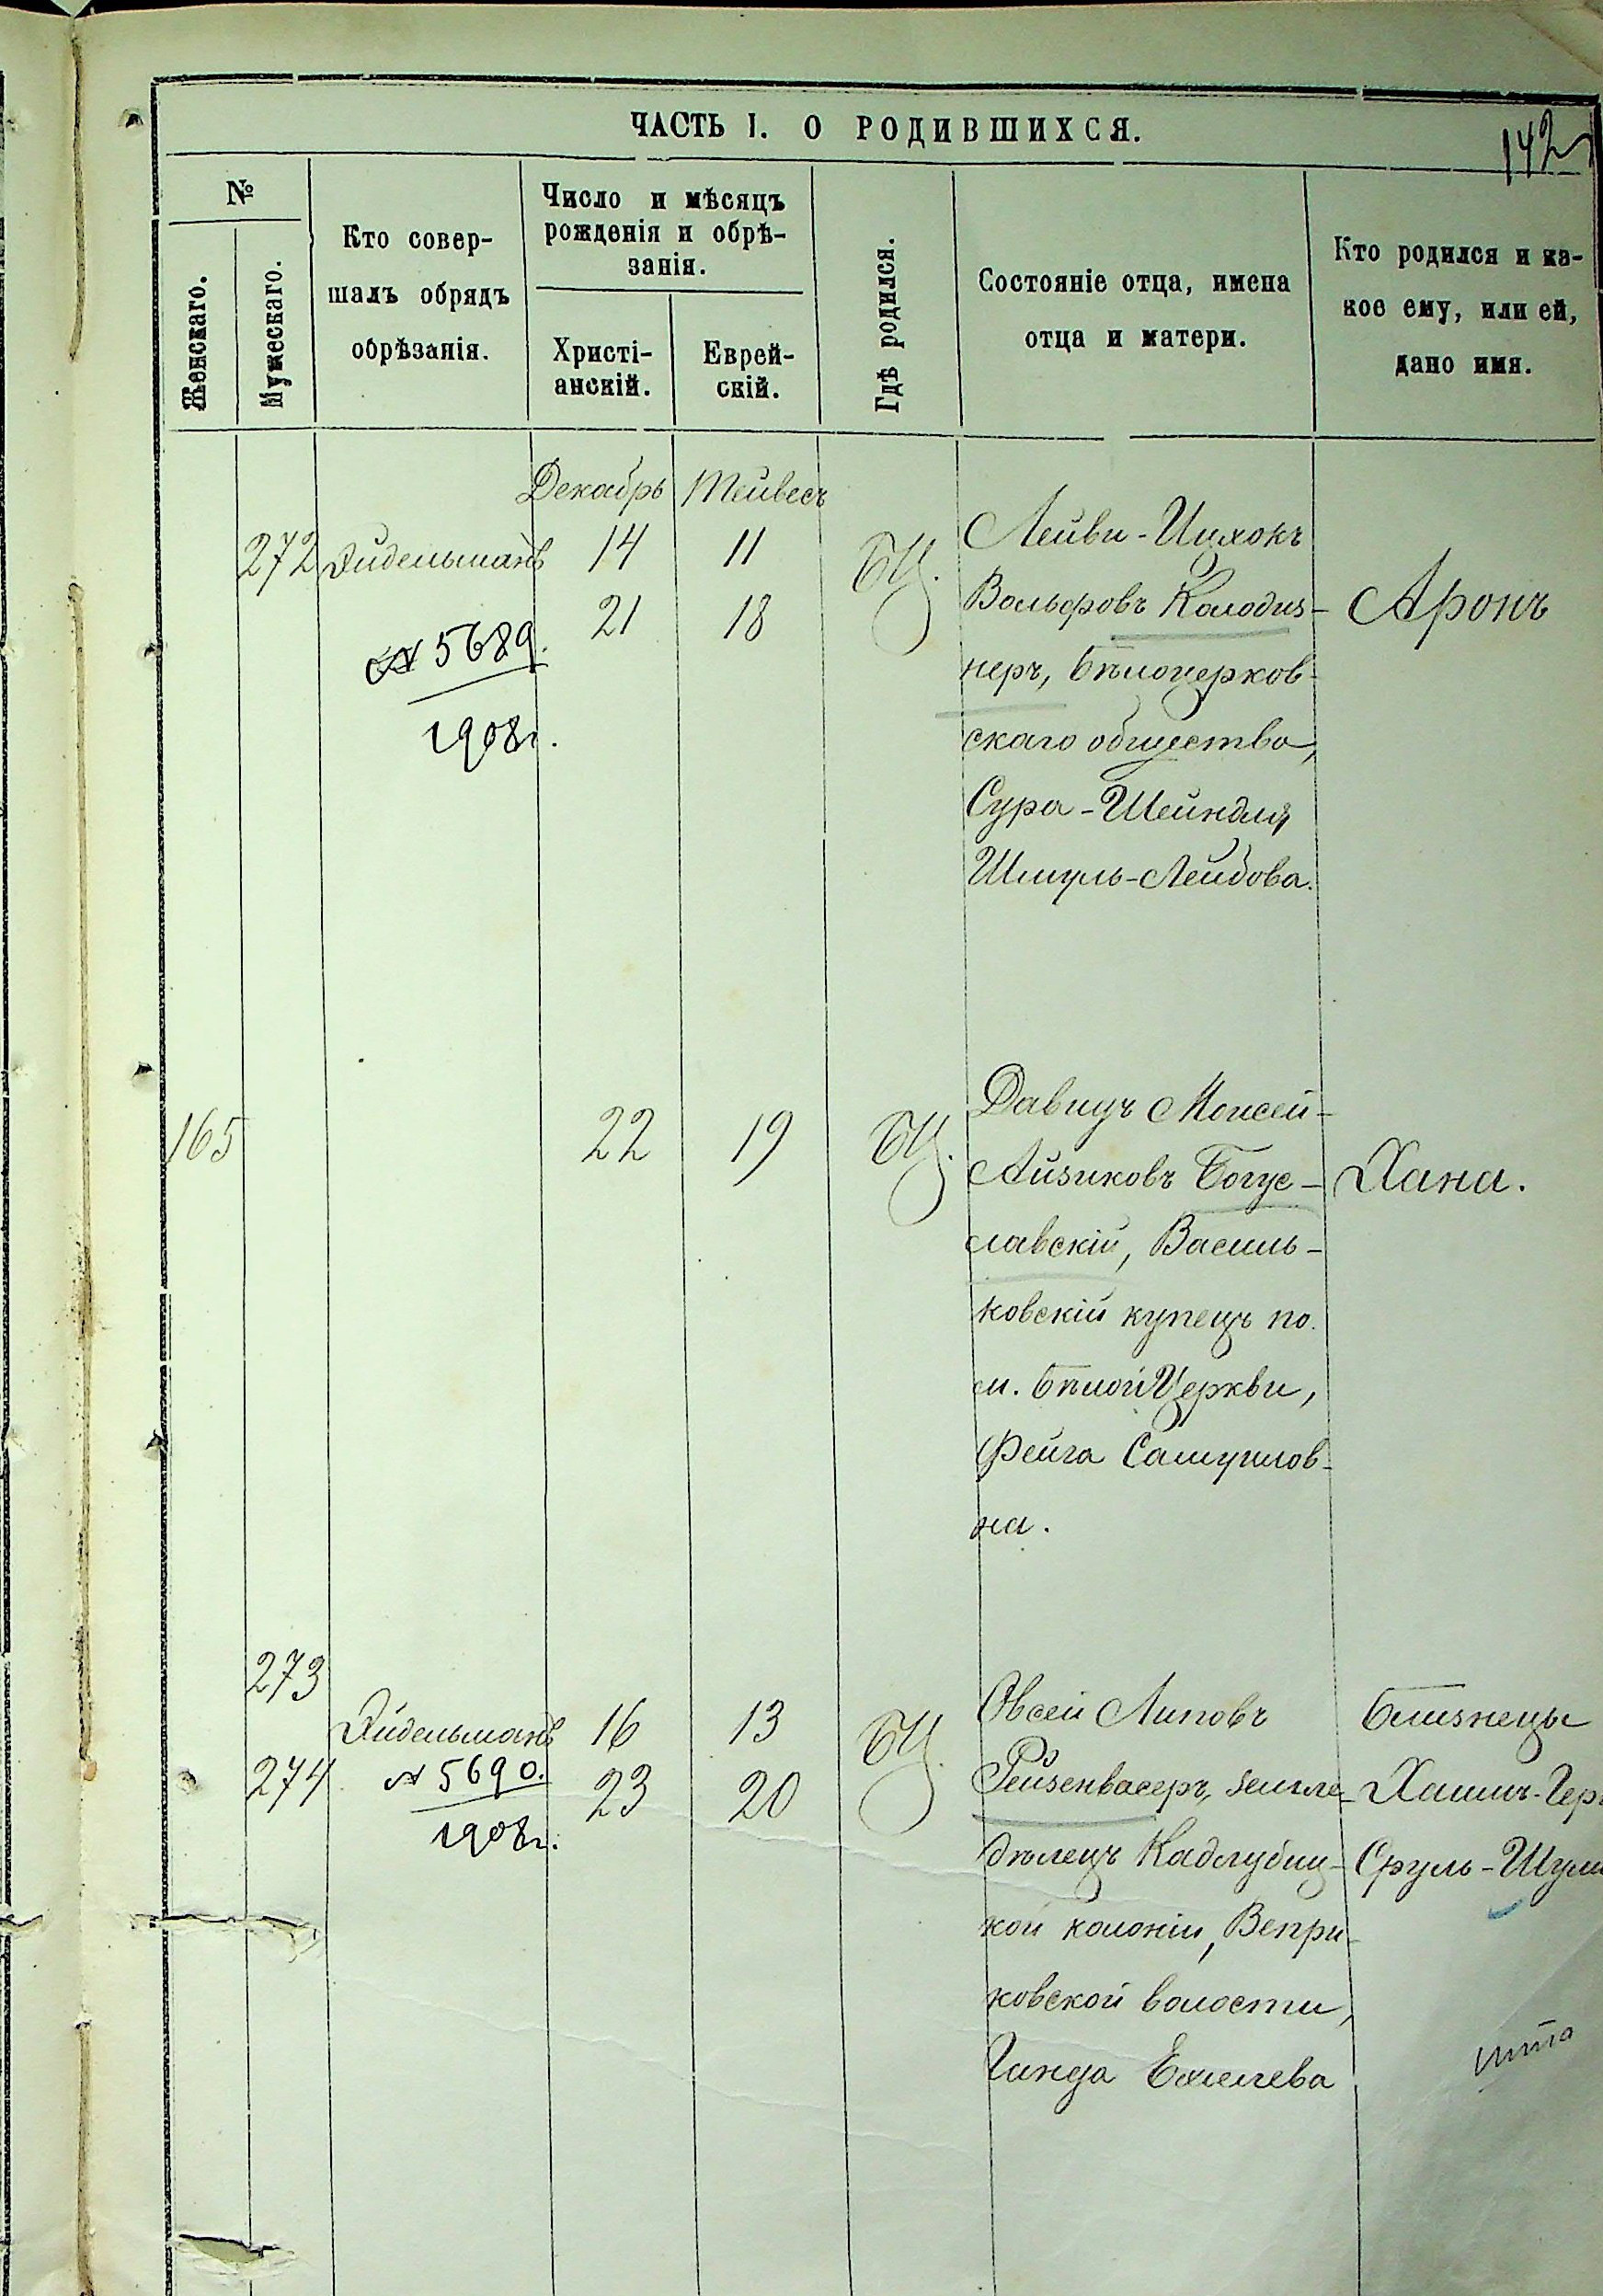 ЧАСТЬ I. О РОДИВШИХСЯ.
142
№
Женскаго.
Мужескаго.
Кто совер-
шалъ обрядъ
обрѣзанія.
Число и мѣсяцъ
рожденія и обрѣ-
занія.
Христі-
анскій.
Еврей-
скій.
Гдѣ родился.
Состояніе отца, имена
отца и матери.
Кто родился и ка-
кое ему, или ей,
дано имя.
Декабрь Тейвесъ
272 Эйдельманъ 14 11 БЦ.
21 18
№ 5689.
1908г.
Лейви-Ицхокъ
Вольфовъ Колодиз-
неръ, Бѣлоцерков-
скаго общества,
Сура-Шейндля
Шмуль-Лейбова.
Аронъ
165 22 19 БЦ.
Давидъ Моисей-
Айзиковъ Богус-
лавскій, Василь-
ковскій купецъ по
м. Бѣлой Церкви,
Фейга Самуилов-
на.
Хана.
273
274
Эйдельманъ 16 13 БЦ.
23 20
№ 5690.
1908г.
Овсей Липовъ
Рейзенвасеръ, земле-
дѣлецъ Кадлубиц-
кой колоніи, Веприк-
овской волости,
Гинда Ехилева
Близнецы
Хаимъ-Гер
Сруль-Шулим